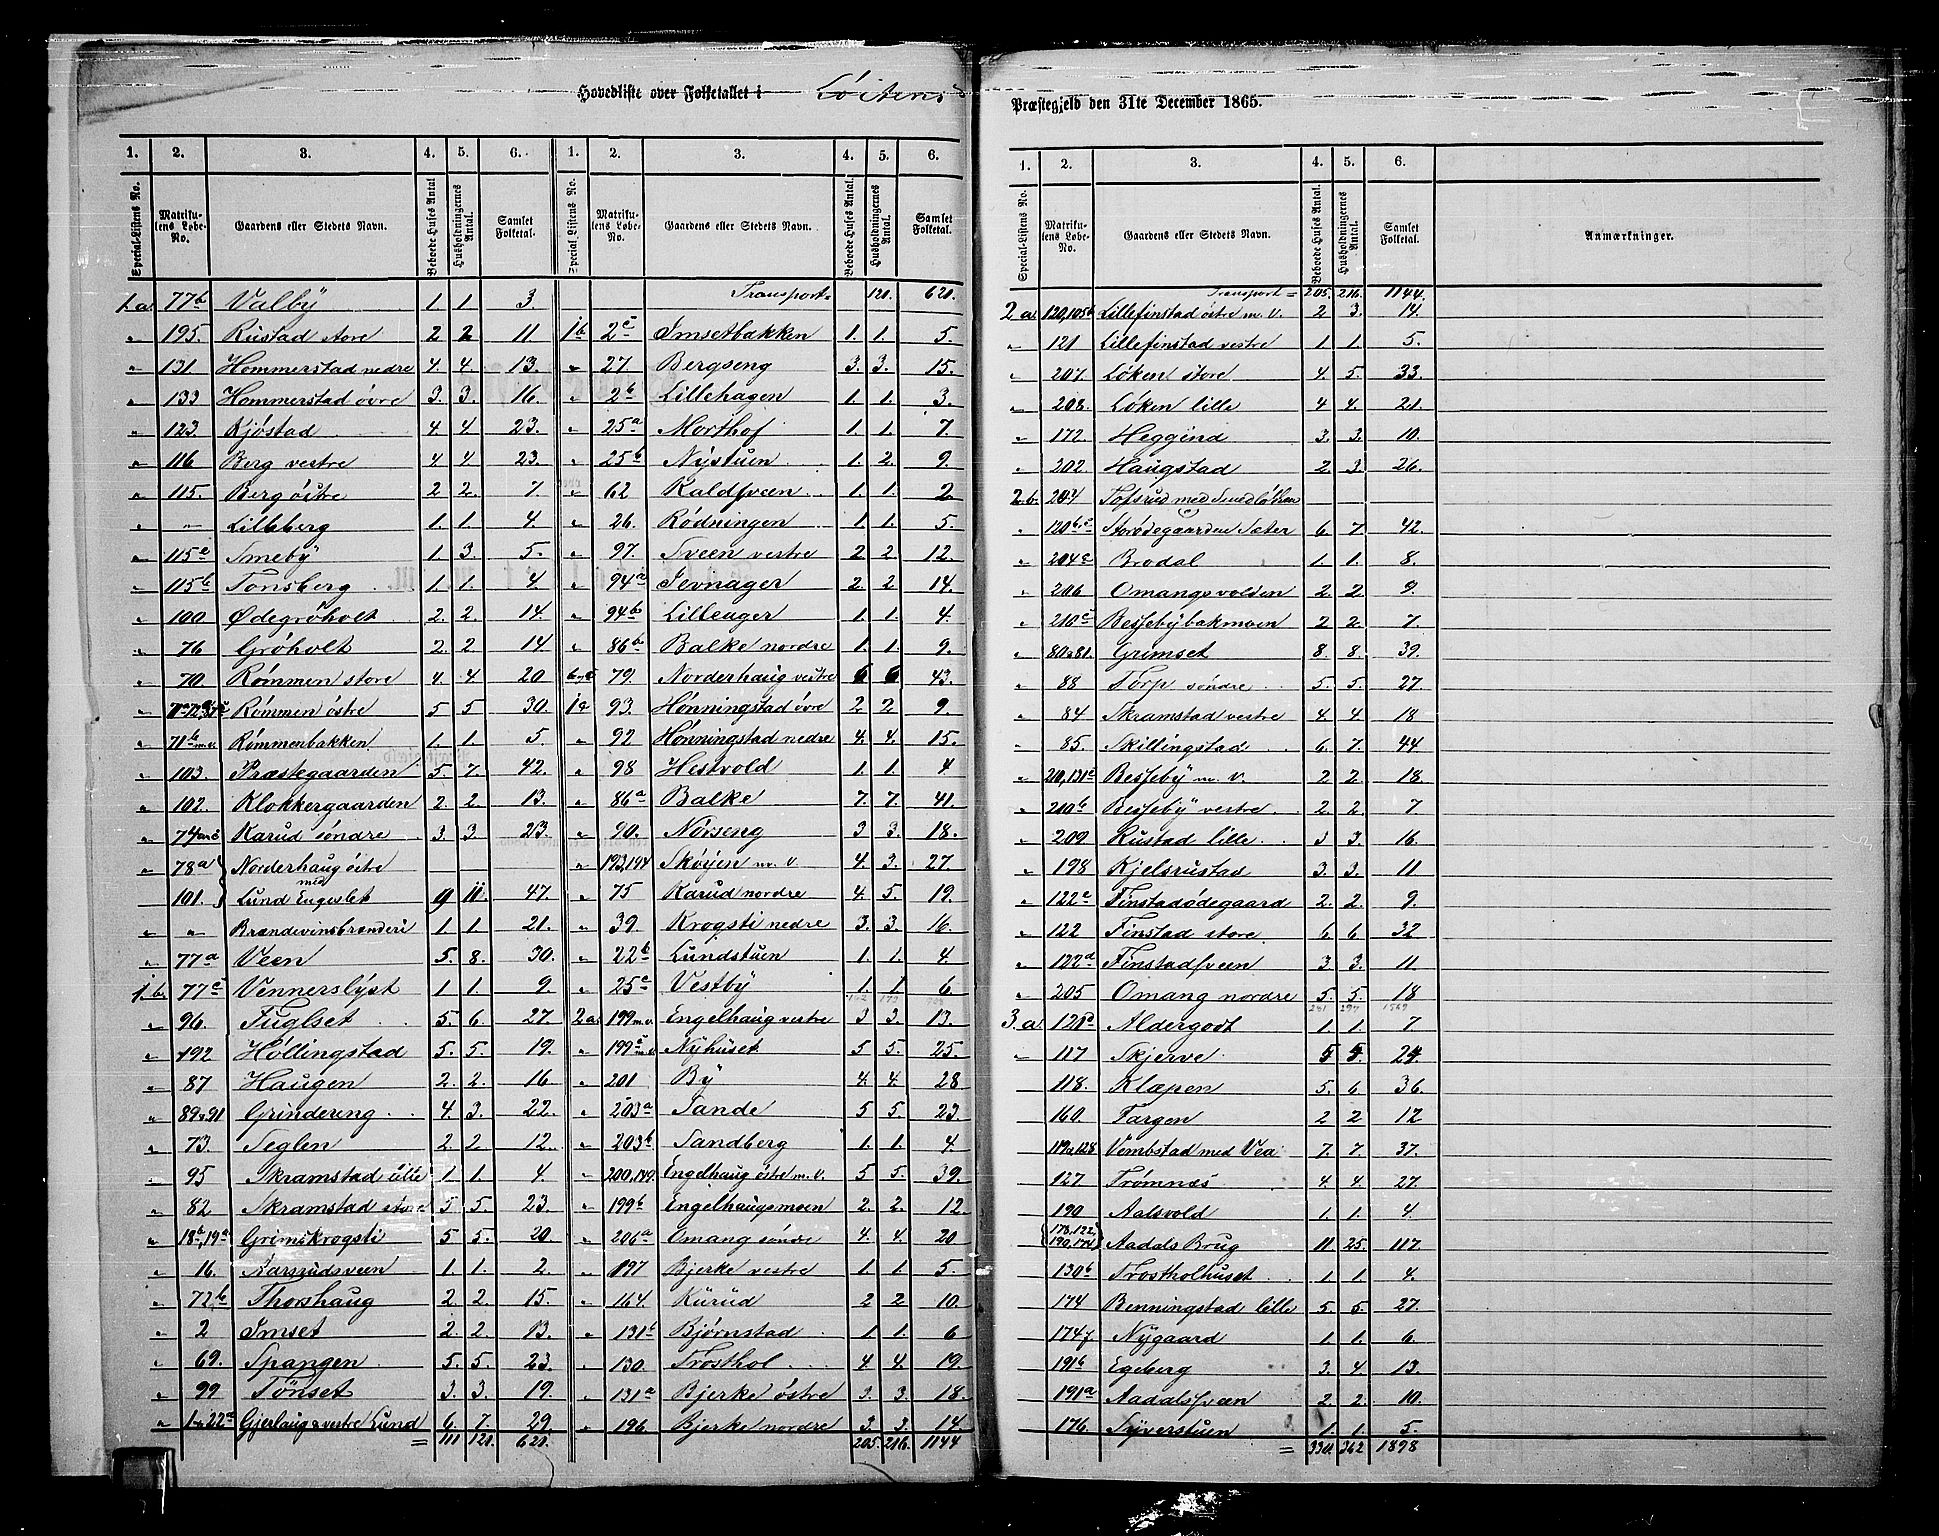 Hovedliste over Folketallet i Løitens Præstegjeld den 31te December 1865.
1. 2. 3. 4. 5. 6. 1. 2. 3. 4. 5. 6.
Special-Listens No. Matrikulens Løbe-No. Gaardens eller Stedets Navn. Beboede Huses Antal Husholdningernes Antal. Samlet Folketal. Special-Listens No. Matrikulens Løbe-No. Gaardens eller Stedets Navn. Beboede Huses Antal. Husholdningernes Antal. Samlet Folketal.
1.a 77b Valby 1. 1. 3
" 195. Rustad store 2 2 11
" 131 Hommerstad nedre 4. 4. 13.
" 133 Hommerstad övre 3. 3. 16
" 123. Kjöstad 4. 4. 23.
" 116 Berg vestre 4. 4. 23.
" 115. Berg östre 2 2. 7.
" " Lilleberg 1. 1. 4.
" 115c Smeby 1. 3. 5.
" 115b Tonsberg 1. 1. 4.
" 100 Ødegröholt 2. 2. 14.
" 76 Gröholt 2. 2 14
" 70. Rømmen store 4. 4 20
" Rømmen östre 5 5 30.
" 71b m.v. Rømmenbakken 1. 1. 5.
" 103. Præstegaarden 5 7. 42.
" 102. Klokkergaarden 2. 2. 13.
" Karud söndre 3. 3. 23.
" 78a Norderhaug östre
101. Lund med Engeslet 9 11. 47.
" " Brændevinsbrænderi 1 1. 21.
" 77a Veen 5. 8. 30.
1.b. 77c Vennerslyst 1 1. 9.
" 96. Fuglset 5. 6. 27.
" 192 Höllingstad 5. 5. 19.
" 87 Haugen 2. 2. 16
" 89 & 91 Grindereng 4. 3. 22.
" 73. Seglen 2. 2. 12.
" 95 Skramstad lille 1 1. 4
" 82 Skramstad store 5 5. 23.
" 18b, 19a Grimskrogsti 5 5. 20
" 16. Aarsrudsveen 1. 1. 2.
" 72b Thorshaug 2. 2. 15.
" 2 Imset 2. 2. 13.
" 69. Spangen 5. 5. 23.
" 99 Tönset 3. 3. 19.
" 1 & 22a Gjerlaug & vestre Lund 6. 7. 29
= 111 121. 621.
Transport = 121. 621.
1b 2c Imsetbakken 1. 1. 5.
" 27 Bergseng 3. 3. 15.
" 2b Lillehagen 1. 1. 3.
" 25a Morthof 1. 1. 7.
" 25b Nystuen 1. 2. 9.
" 62 Kaldsveen 1. 1. 2
" 26. Rödningen 1. 1. 5.
" 97. Sveen vestre 2 2. 12.
" 94a Jevnager 2. 2. 14.
" 94b Lilleager 1. 1. 4.
" 86b Balke nordre 1. 1. 9.
79. Norderhaug vestre 6 6 43.
93. Hønningstad övre 2 2 9
" 92 Hønningstad nedre 4. 4. 15.
" 98 Hestvold 1. 1. 4
" 86a Balke 7. 7. 41.
" 90. Nørseng 3 3. 18.
" 193,194 Skøyen m. V. 4. 3. 27
" 75 Karud nordre 4. 5. 19.
" 39. Krogsti nedre 3. 3. 16.
" 22b Lundstuen 1. 1. 4
" 25c Vestby 1. 1 6
2a 199 m.v. Engelhaug vestre 3 3. 13.
" 199c m.v. Nyhuset 5 5. 25.
" 201 By 4. 4. 28
" 203a Sande 5 5. 23.
" 203b Sandberg 1. 1. 4.
" 200,149. Engelhaug östre m.V. 5 5. 39.
" 199b Engelhaugsmoen 2. 2. 12.
" 206a Omang söndre 4. 4. 20
" 197 Bjerke vestre 1. 1. 5.
" 164. Kürud 2 2 10.
" 131b Bjørnstad 1. 1. 6
" 130. Trosthol 4. 4. 19.
" 131a Bjerke östre 3. 3. 18.
" 196. Bjerke nordre 3. 3. 14.
205. 216. 1144
1. 2. 3. 4. 5. 6.
Special-Listens No. Matrikulens Løbe-No. Gaardens eller Stedets Navn. Beboede Huses Antal. Husholdningernes Antal. Samlet Folketal. Anmærkninger.
Transport = 205. 216. 1144.
2a 120,105b Lillefinstad östre m. V. 2 3. 14.
" 121 Lillefinstad vestre 1 1. 5.
" 207. Løken store 4. 5. 33.
" 208. Løken lille 4 4. 21.
" 172. Heggind 3. 3. 10.
" 202 Haugstad 2. 3 26.
2.b. 204 Tofsrud med
" 120b,c Storødegaardens Sæter 6. 7. 42.
" 204c Brodal 1. 1. 8.
" 206 Omangsvolden 2. 2 9.
" 210c Bessebybakmoen 2 2. 7
" 80&81. Grimset 8. 8. 39.
" 88 Torp söndre 5. 5. 27.
" 84 Skramstad vestre 4. 4. 18
" 85. Skillingstad 6. 7. 44
" 210,131c Besseby m. V. 2 2. 18.
" 210b Besseby vestre 2. 2. 7
" 209 Rustad lille 3 3. 16
" 198 Kjelsrustad 3. 3. 11
" 122c Finstadødegaard 2. 2. 9
" 122 Finstad store 6. 6 32
" 122d Finstadsveen 3 3. 11.
" 205 Omang nordre 5. 5. 18
3.a. Aldergodt 1. 1. 7
" 117 Skjerve 5 5. 24
118. Klæpen 5. 6. 36.
160. Fargen 2 2 12
119a,128 Vembstad med Vea 7. 7. 37.
127. Trømnæs 4. 4. 27.
190 Aalsvold 1. 1. 4.
Aadals Brug 11 25. 117.
130b Trostholhuset 1. 1. 4.
174 Benningstad lille 5. 5. 27.
Nygaard 1 1. 6
191b Egeberg 3. 4. 13.
191a Aadalsveen 2 2. 10.
176. Syverstuen 1. 1. 5.
= 330. 362 1898